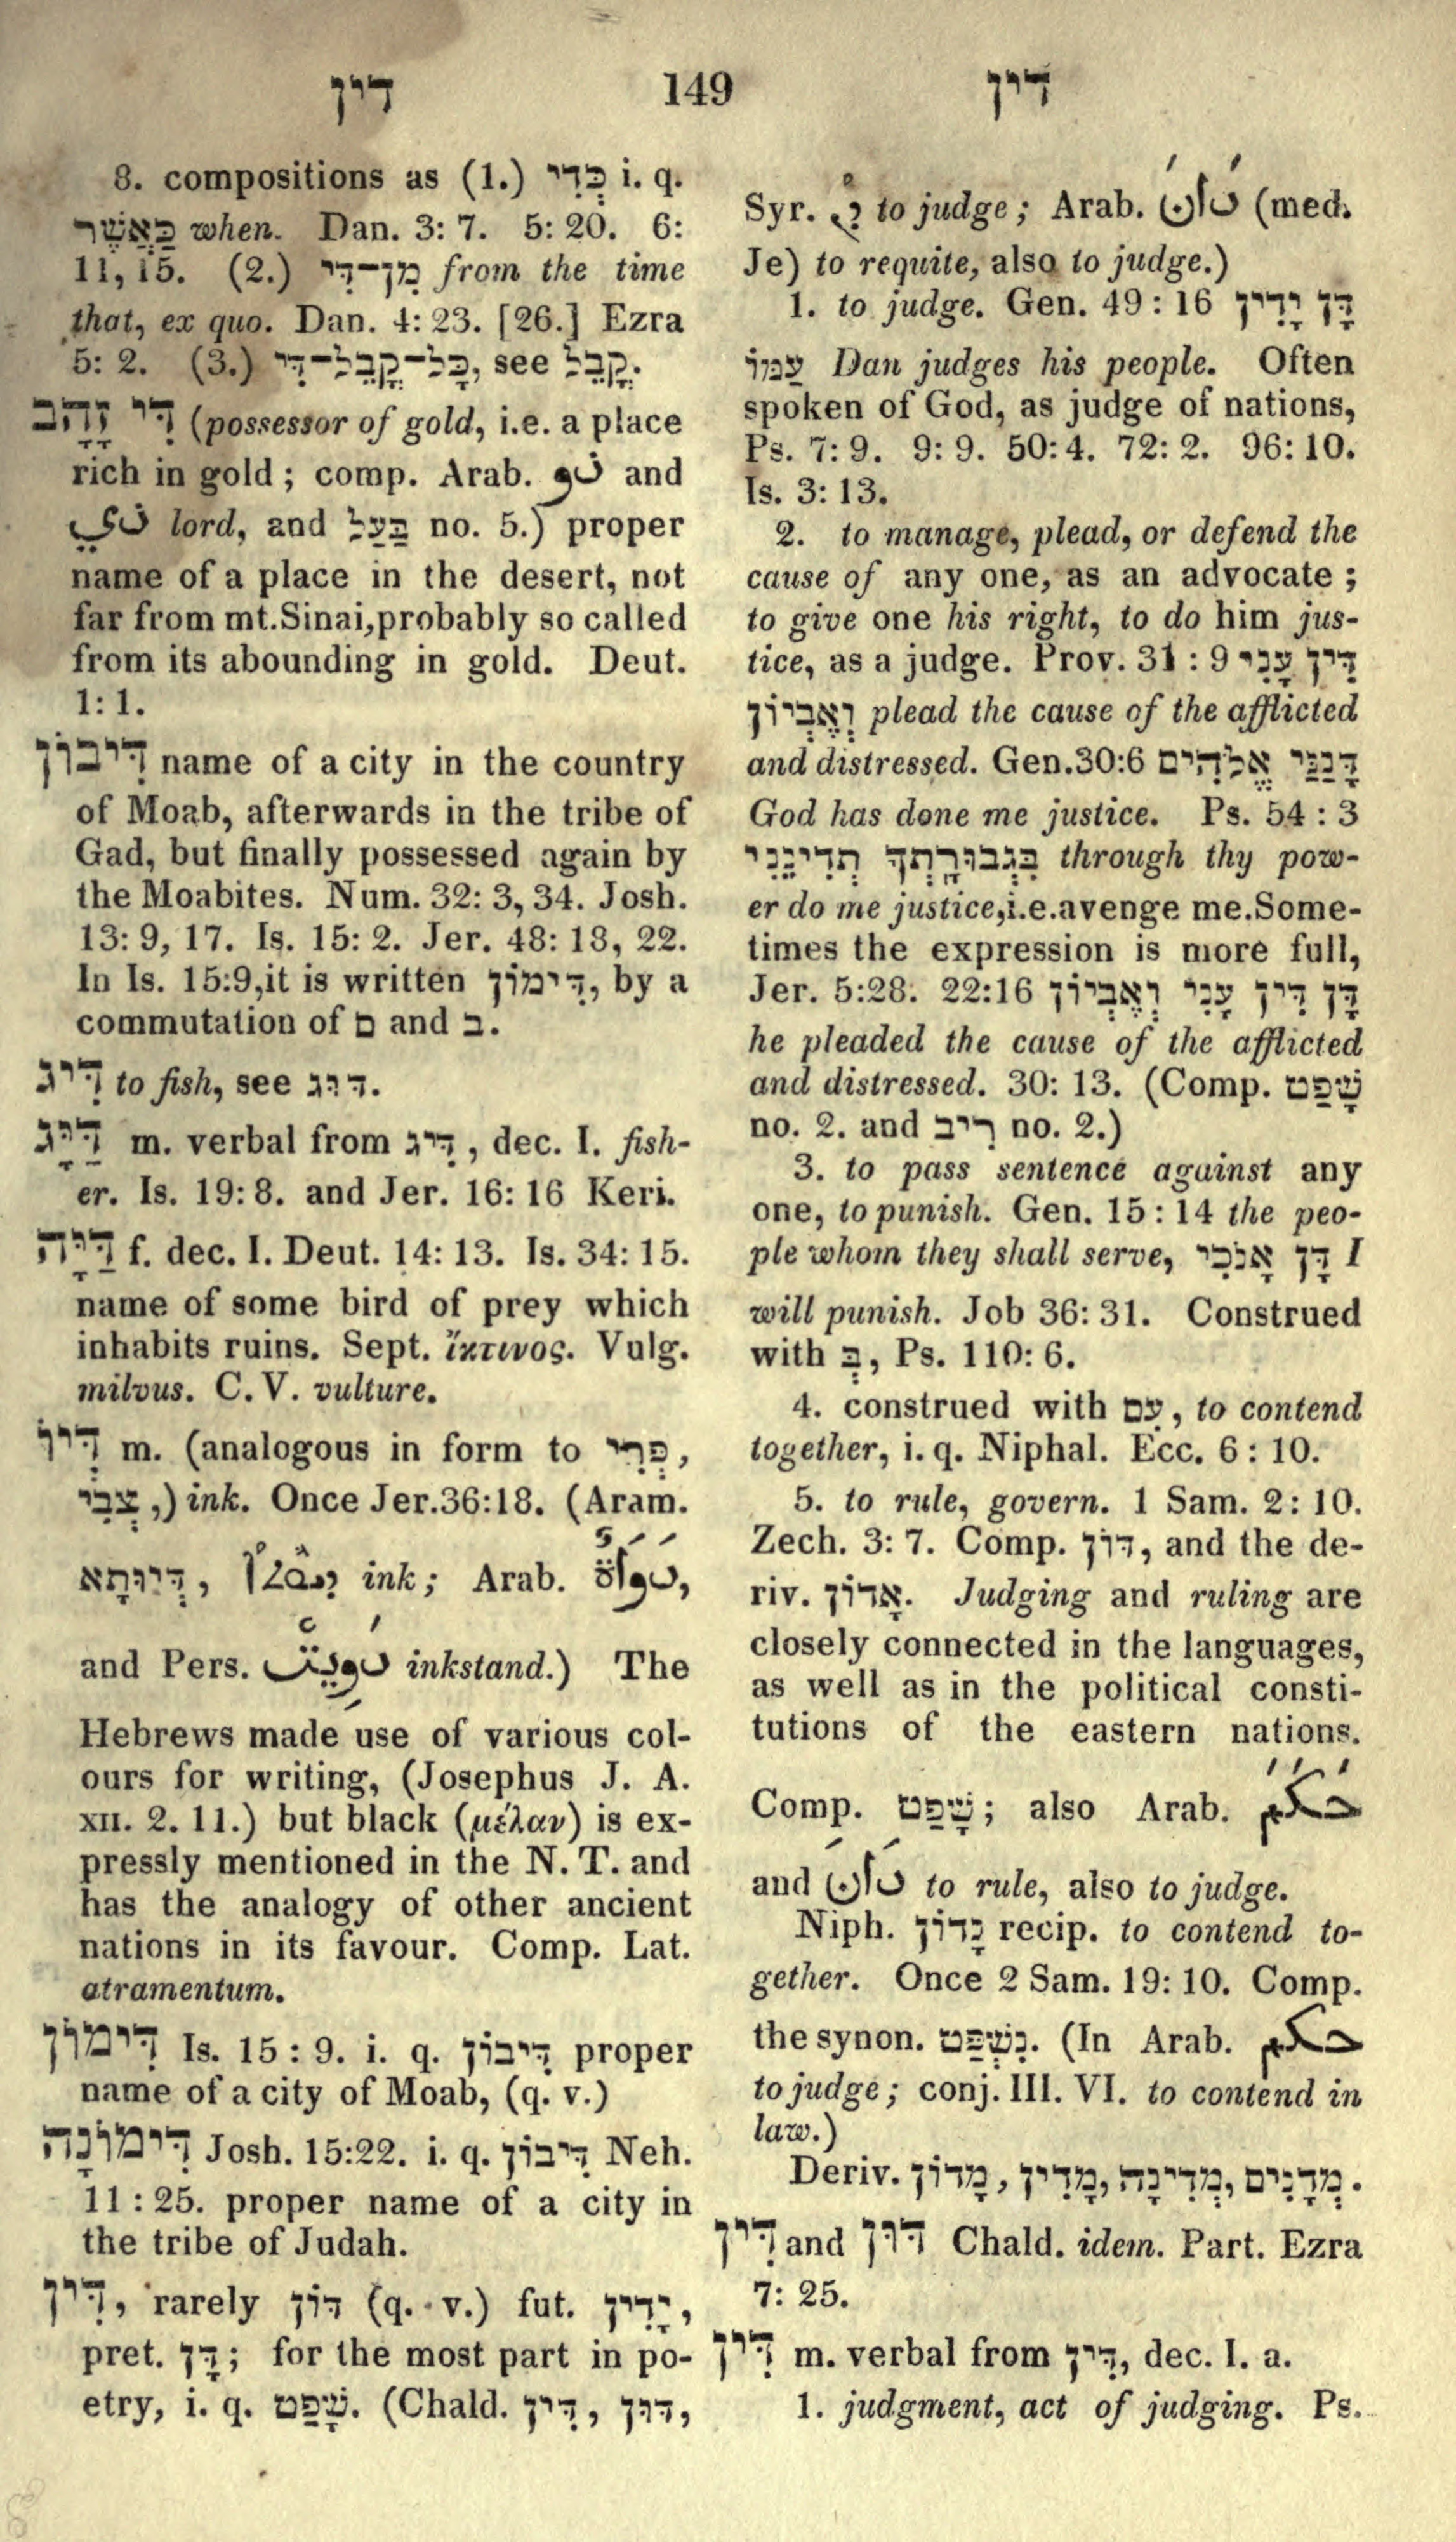 דין 149 דין
8. compositions as (1.) כְּדִי i. q.
כַּאֲשֶׁר when. Dan. 3: 7. 5: 20. 6:
11, 15. (2.) מִן־דִּי from the time
that, ex quo. Dan. 4: 23. [26.] Ezra
5: 2. (3.) כָּל־קֳבֵל־דִּי, see קֳבֵל.
דִּי זָהָב (possessor of gold, i.e. a place
rich in gold; comp. Arab. ذو and
ذي lord, and בַּעַל no. 5.) proper
name of a place in the desert, not
far from mt.Sinai,probably so called
from its abounding in gold. Deut.
1: 1.
דִּיבוֹן name of a city in the country
of Moab, afterwards in the tribe of
Gad, but finally possessed again by
the Moabites. Num. 32: 3, 34. Josh.
13: 9, 17. Is. 15: 2. Jer. 48: 18, 22.
In Is. 15:9,it is written דִּימוֹן, by a
commutation of מ and ב.
דִּיג to fish, see דּוּג.
דַּיָּג m. verbal from דִּיג, dec. I. fish-
er. Is. 19: 8. and Jer. 16: 16 Keri.
דַּיָּה f. dec. I. Deut. 14: 13. Is. 34: 15.
name of some bird of prey which
inhabits ruins. Sept. ἴκτινος. Vulg.
milvus. C. V. vulture.
דְּיוֹ m. (analogous in form to פְּרִי,
צְבִי,) ink. Once Jer.36:18. (Aram.
דְּיוּתָא, ܕܝܘܬܐ ink; Arab. دَوَاةٌ,
and Pers. دَوِيتْ inkstand.) The
Hebrews made use of various col-
ours for writing, (Josephus J. A.
XII. 2. 11.) but black (μέλαν) is ex-
pressly mentioned in the N. T. and
has the analogy of other ancient
nations in its favour. Comp. Lat.
atramentum.
דִּימוֹן Is. 15: 9. i. q. דִּיבוֹן proper
name of a city of Moab, (q. v.)
דִּימוֹנָה Josh. 15:22. i. q. דִּיבוֹן Neh.
11: 25. proper name of a city in
the tribe of Judah.
דִּין, rarely דּוֹן (q. v.) fut. יָדִין,
pret. דָּן; for the most part in po-
etry, i. q. שָׁפַט. (Chald. דִּין, דּוּן,
Syr. ܕܢ to judge; Arab. دَانَ (med.
Je) to requite, also to judge.)
1. to judge. Gen. 49: 16 דָּן יָדִין
עַמּוֹ Dan judges his people. Often
spoken of God, as judge of nations,
Ps. 7: 9. 9: 9. 50: 4. 72: 2. 96: 10.
Is. 3: 13.
2. to manage, plead, or defend the
cause of any one, as an advocate;
to give one his right, to do him jus-
tice, as a judge. Prov. 31: 9 דִּין עָנִי
וְאֶבְיוֹן plead the cause of the afflicted
and distressed. Gen.30:6 דָּנַנִּי אֱלֹהִים
God has done me justice. Ps. 54: 3
בִּגְבוּרָתְךָ תְדִינֵנִי through thy pow-
er do me justice,i.e.avenge me.Some-
times the expression is more full,
Jer. 5:28. 22:16 דָּן דִּין עָנִי וְאֶבְיוֹן
he pleaded the cause of the afflicted
and distressed. 30: 13. (Comp. שָׁפַט
no. 2. and רִיב no. 2.)
3. to pass sentence against any
one, to punish. Gen. 15: 14 the peo-
ple whom they shall serve, דָּן אָנֹכִי I
will punish. Job 36: 31. Construed
with בְּ, Ps. 110: 6.
4. construed with עִם, to contend
together, i. q. Niphal. Ecc. 6: 10.
5. to rule, govern. 1 Sam. 2: 10.
Zech. 3: 7. Comp. דּוֹן, and the de-
riv. אָדוֹן. Judging and ruling are
closely connected in the languages,
as well as in the political consti-
tutions of the eastern nations.
Comp. שָׁפַט; also Arab. حَكَمَ
and دَانَ to rule, also to judge.
Niph. נָדוֹן recip. to contend to-
gether. Once 2 Sam. 19: 10. Comp.
the synon. נִשְׁפַּט. (In Arab. حكم
to judge; conj. III. VI. to contend in
law.)
Deriv. מָדוֹן, מָדִין, מְדִינָה, מְדָנִים.
דִּין and דּוּן Chald. idem. Part. Ezra
7: 25.
דִּין m. verbal from דִּין, dec. I. a.
1. judgment, act of judging. Ps.